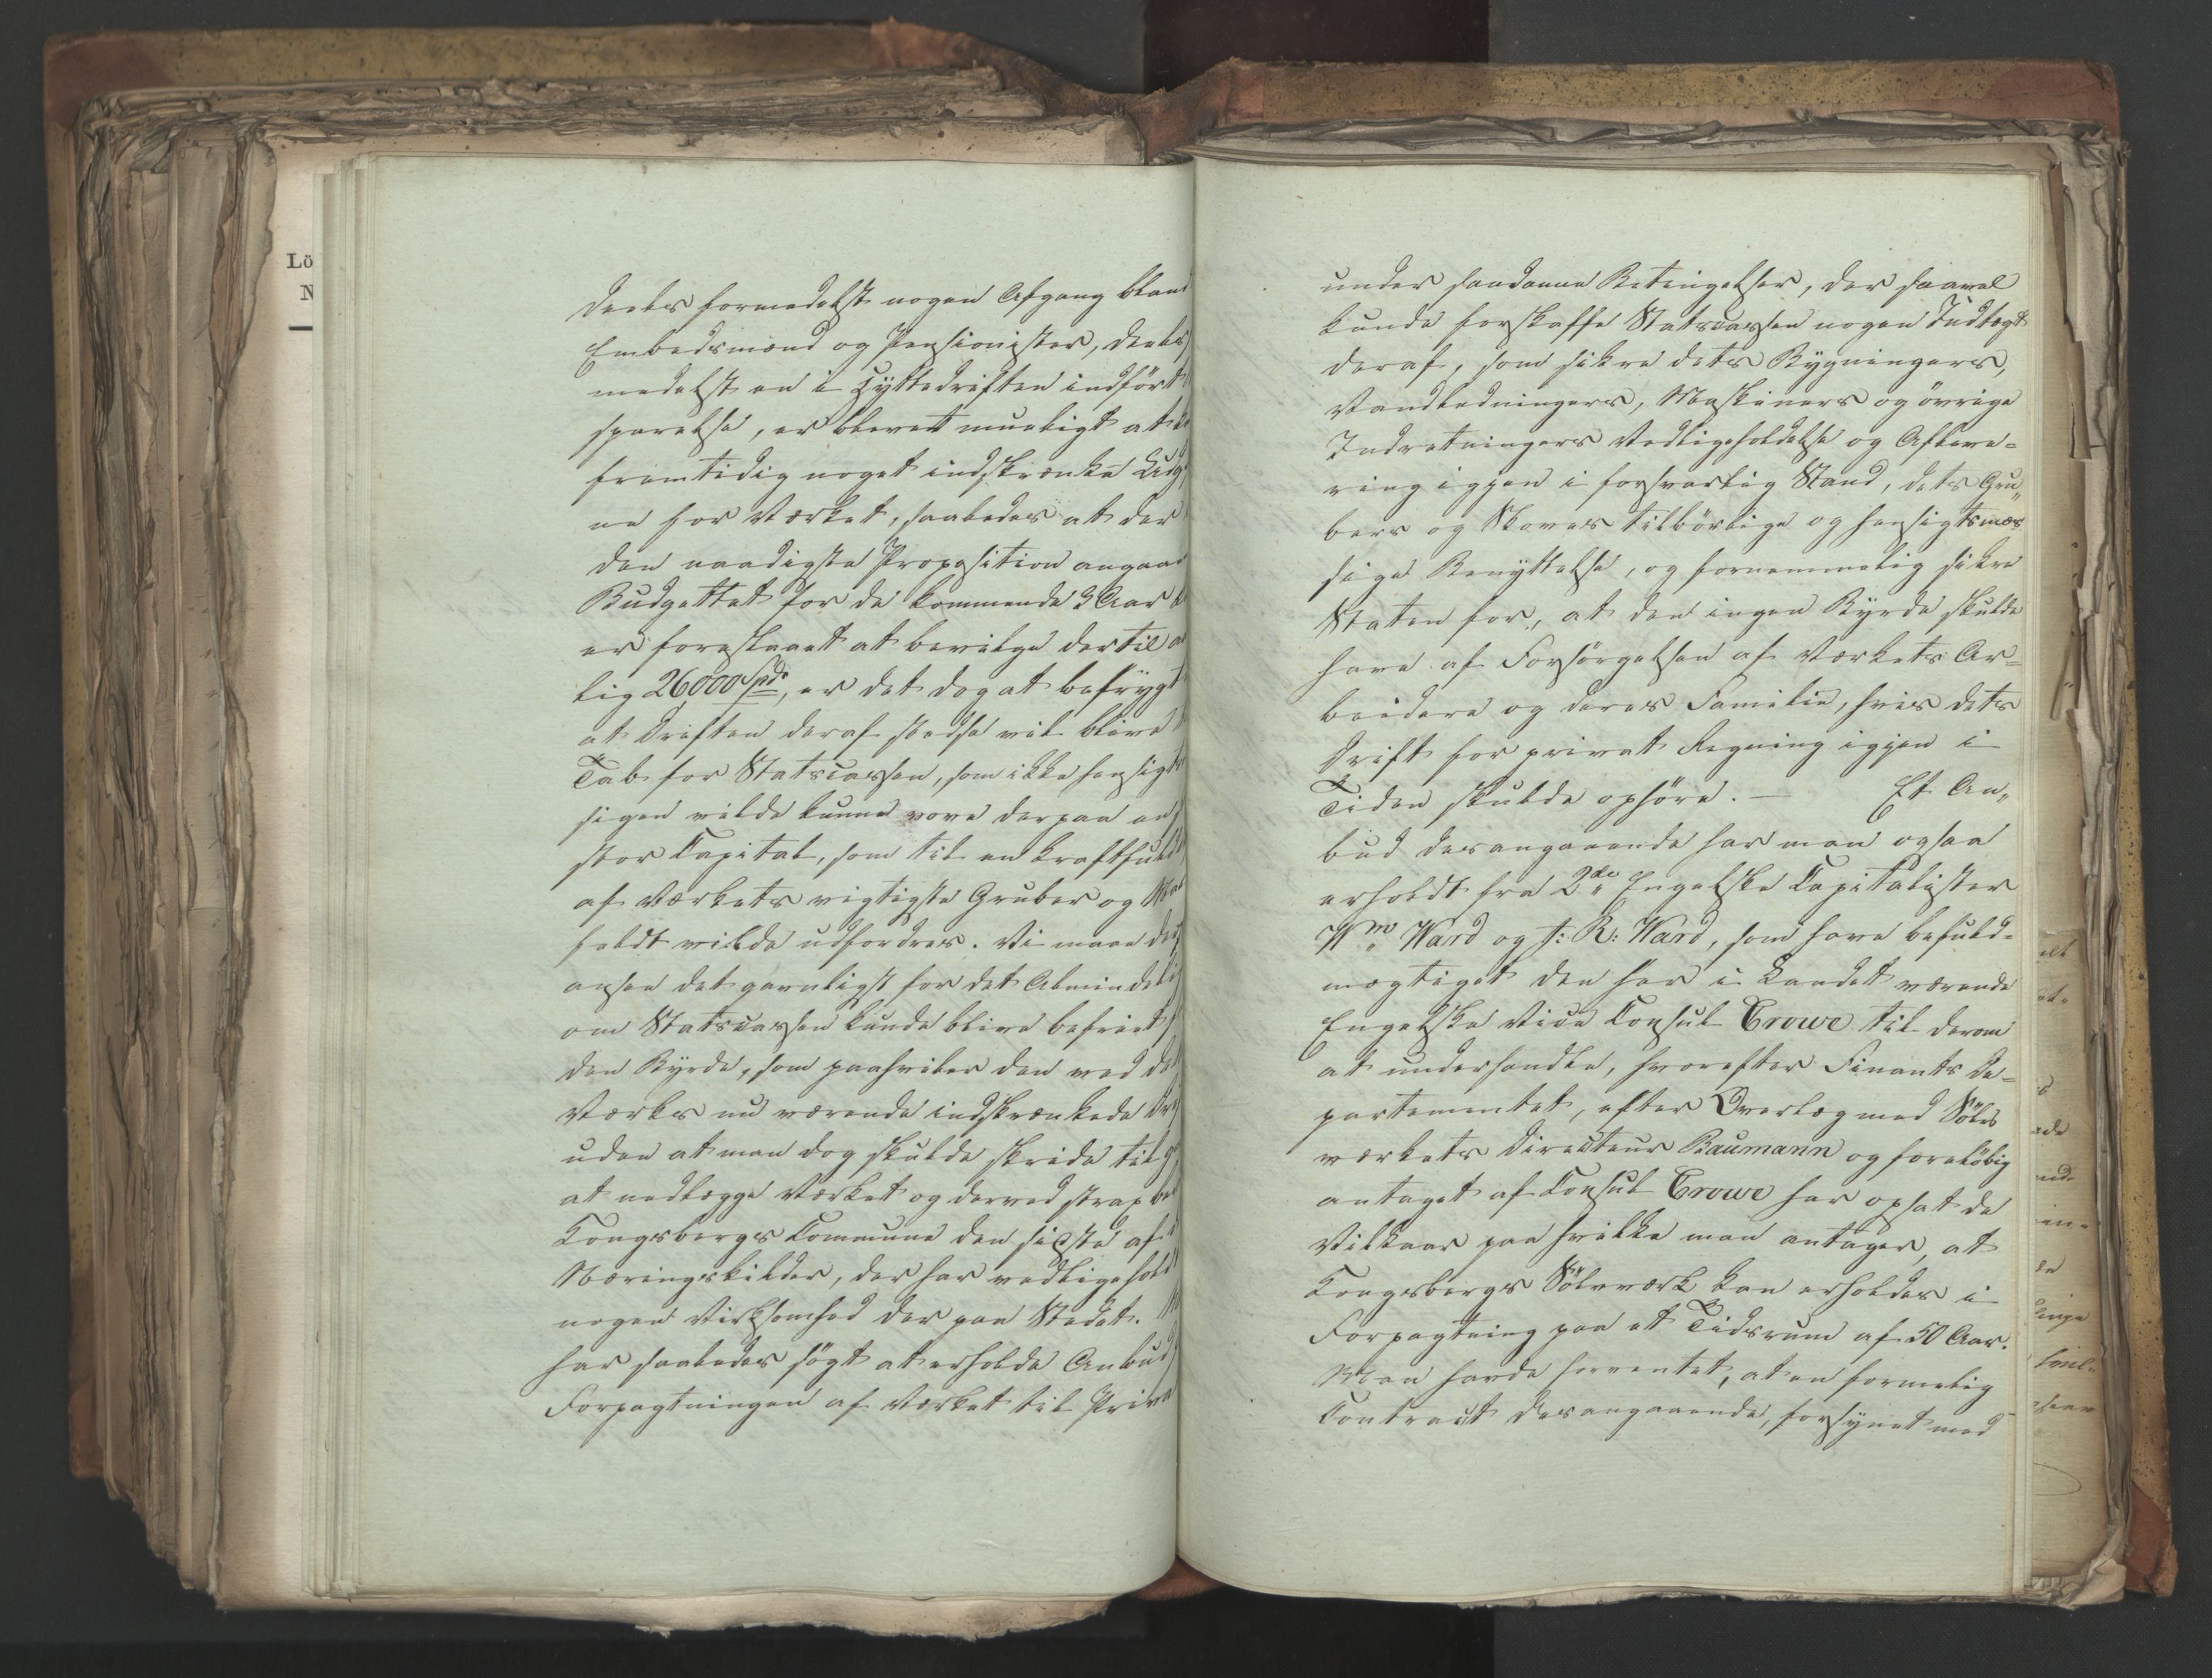 Lö
N
deels formedelst nogen Afgang bland
Embedsmænd og Pensionister, deels
medelst en i Hyttedriften indført
sparelse, er blevet mueligt at
fremtidig noget indskrænke Udg
ne for Værket, saaledes at der
den naadigste Proposition angaae
Budgettet for de kommende 3 Aar
er foreslaaet at bevilge dertil
lig 26000 Spd, er det dog at befrygt
at Driften deraf stedse vil blive
Tab for Statscassen, som ikke hensigts
sigen vilde kunne vove derpaa en
stor Capital, som til en kraftfuld
af Værkets vigtigste Gruber og
feldt vilde udfordres. Vi maae
ansee det gavnligst for det Almindeli
om Statscassen kunde blive befriet
den Byrde, som paahviler den ved
Værkes nu værende indskrænkede
uden at man dog skulde skride til
at nedlægge Værket og derved strax
Kongsbergs Commune den sidste af
Næringskilder, der har vedligeholdt
nogen Virksomhed der paa Stedet.
har saaledes søgt at erholde Anbud
Forpagtningen af Værket til Priva
under saadanne Betingelser, der saavel
kunde forskaffe Statscassen nogen Indtægt
deraf, som sikre dets Bygningers,
Vandledningers, Maskiners og øvrige
Indretningers Vedligeholdelse og Afleve=
ring igjen i forsvarlig Stand, dets Gru„
bers og Skoves tilbørlige og hensigtsmæs
sige Benyttelse, og fornemmelig sikre
Staten for, at den ingen Byrde skulde
have af Forsørgelsen af Værkets Ar=
beidere og deres Familie, hvis dets
Drift for privat Regning igjen i
Tiden skulde ophøre. — Et An„
bud desangaaende har man ogsaa
erholdt fra 2de Engelske Capitalister
Wm Ward og J: R: Ward, som have befuld=
mægtiget den her i Landet værende
Engelske Vice Consul Crowe til derom
at underhandle, hvorefter Finants De=
partementet, efter Overlæg med Sölv
værkets Directeur Baumann og foreløbig
antaget af Consul Crowe har opsat de
Vilkaar paa hvilke man antager, at
Kongsbergs Sölvværk kan erholdes i
Forpagtning paa et Tidsrum af 50 Aar.
Man havde forventet, at en formelig
Contract desangaaende, forsynet med